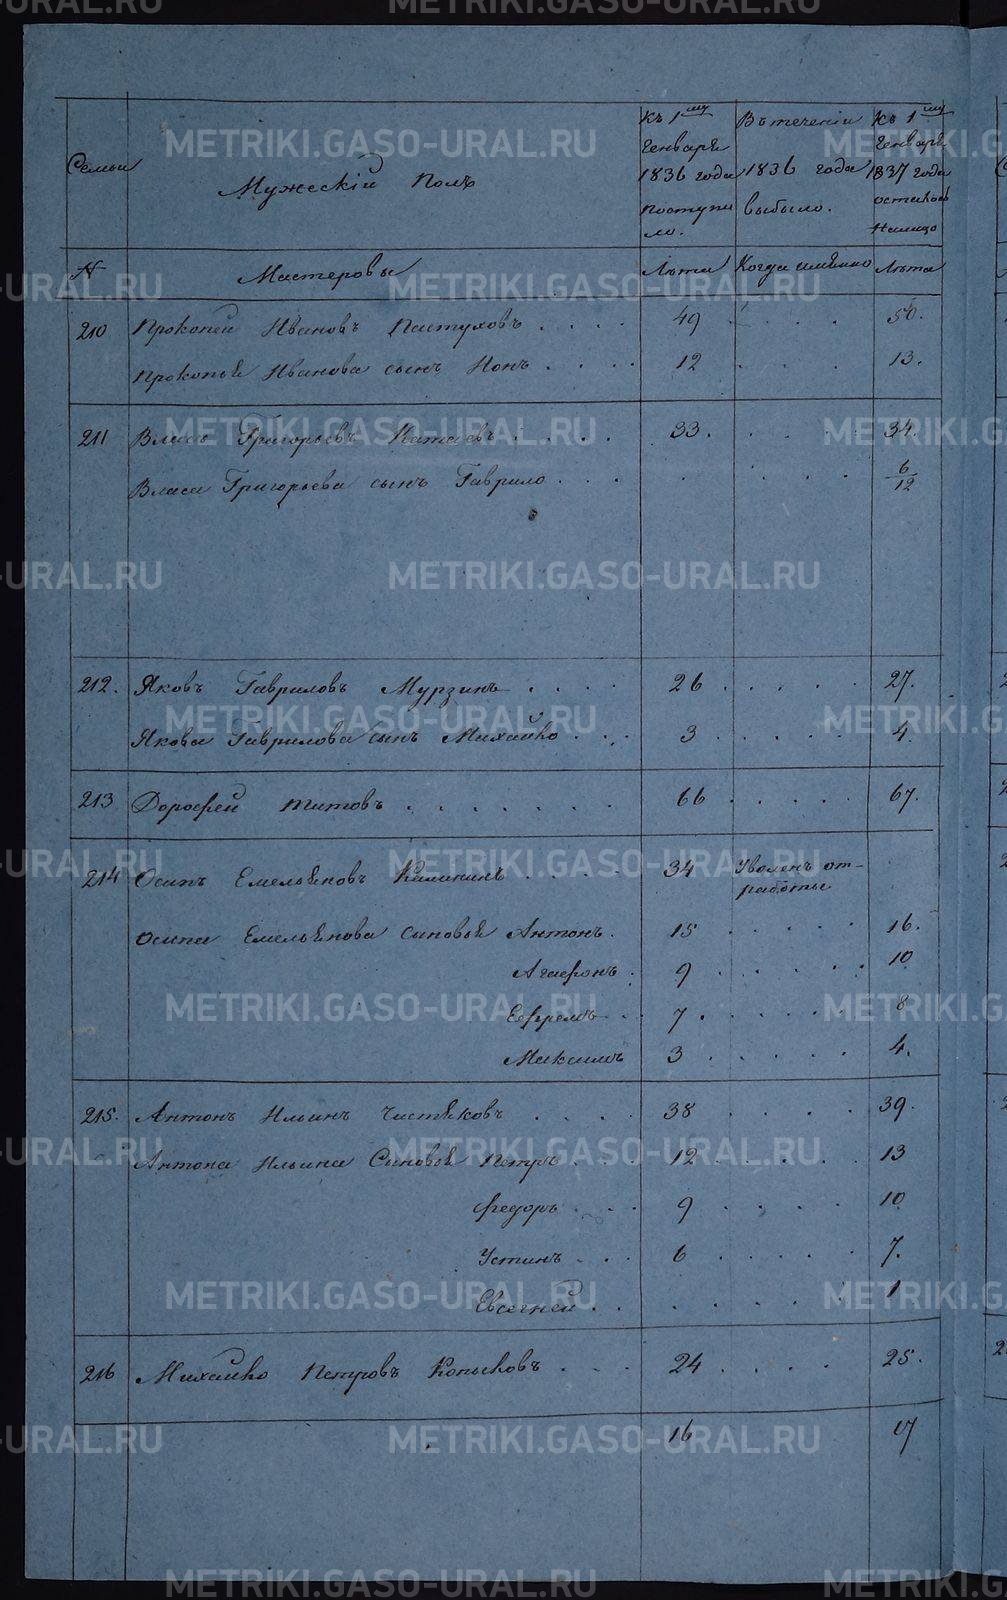 Семьи
Мужескій Полъ
Къ 1му Генваря 1836 года поступило.
Въ теченіи 1836 года выбыло.
Къ 1му Генваря 1837 года осталось налицо
№ Мастеровые Лѣта Когда имянно Лѣта
210 Прокопей Ивановъ Пастуховъ . . . . 49 . . . . 50.
Прокопья Иванова сынъ Іонъ . . . . 12 . . . . 13.
211 Власъ Григорьевъ Катаевъ . . . . 33. . . . . 34.
Власа Григорьева сынъ Гаврило . . . . . . . . 6/12
212. Яковъ Гавриловъ Мурзинъ . . . . 26 . . . . . 27.
Якова Гаврилова сынъ Михайло . . . 3 . . . . . 4.
213 Дорофей Титовъ . . . . . . . 66 . . . . . 67.
214 Осипъ Емельяновъ Калининъ . . . . . 34 Уволенъ от-
работы
Осипа Емельянова сыновья Антонъ. 15 . . . . . 16.
Агафонъ . 9 . . . . . 10
Ефремъ . . 7 . . . . . 8
Максимъ 3 . . . . . 4.
215. Антонъ Ильинъ Чистяковъ . . . . 38 . . . . 39.
Антона Ильина Сыновья Петръ . . . 12 . . . . . 13
Федоръ . . . 9 . . . . 10
Устинъ . . . 6 . . . . . 7.
Евсегней . . . . . . . 1
216 Михайло Петровъ Копысовъ . . . 24 . . . . 25.
16 17
METRIKI.GASO-URAL.RU